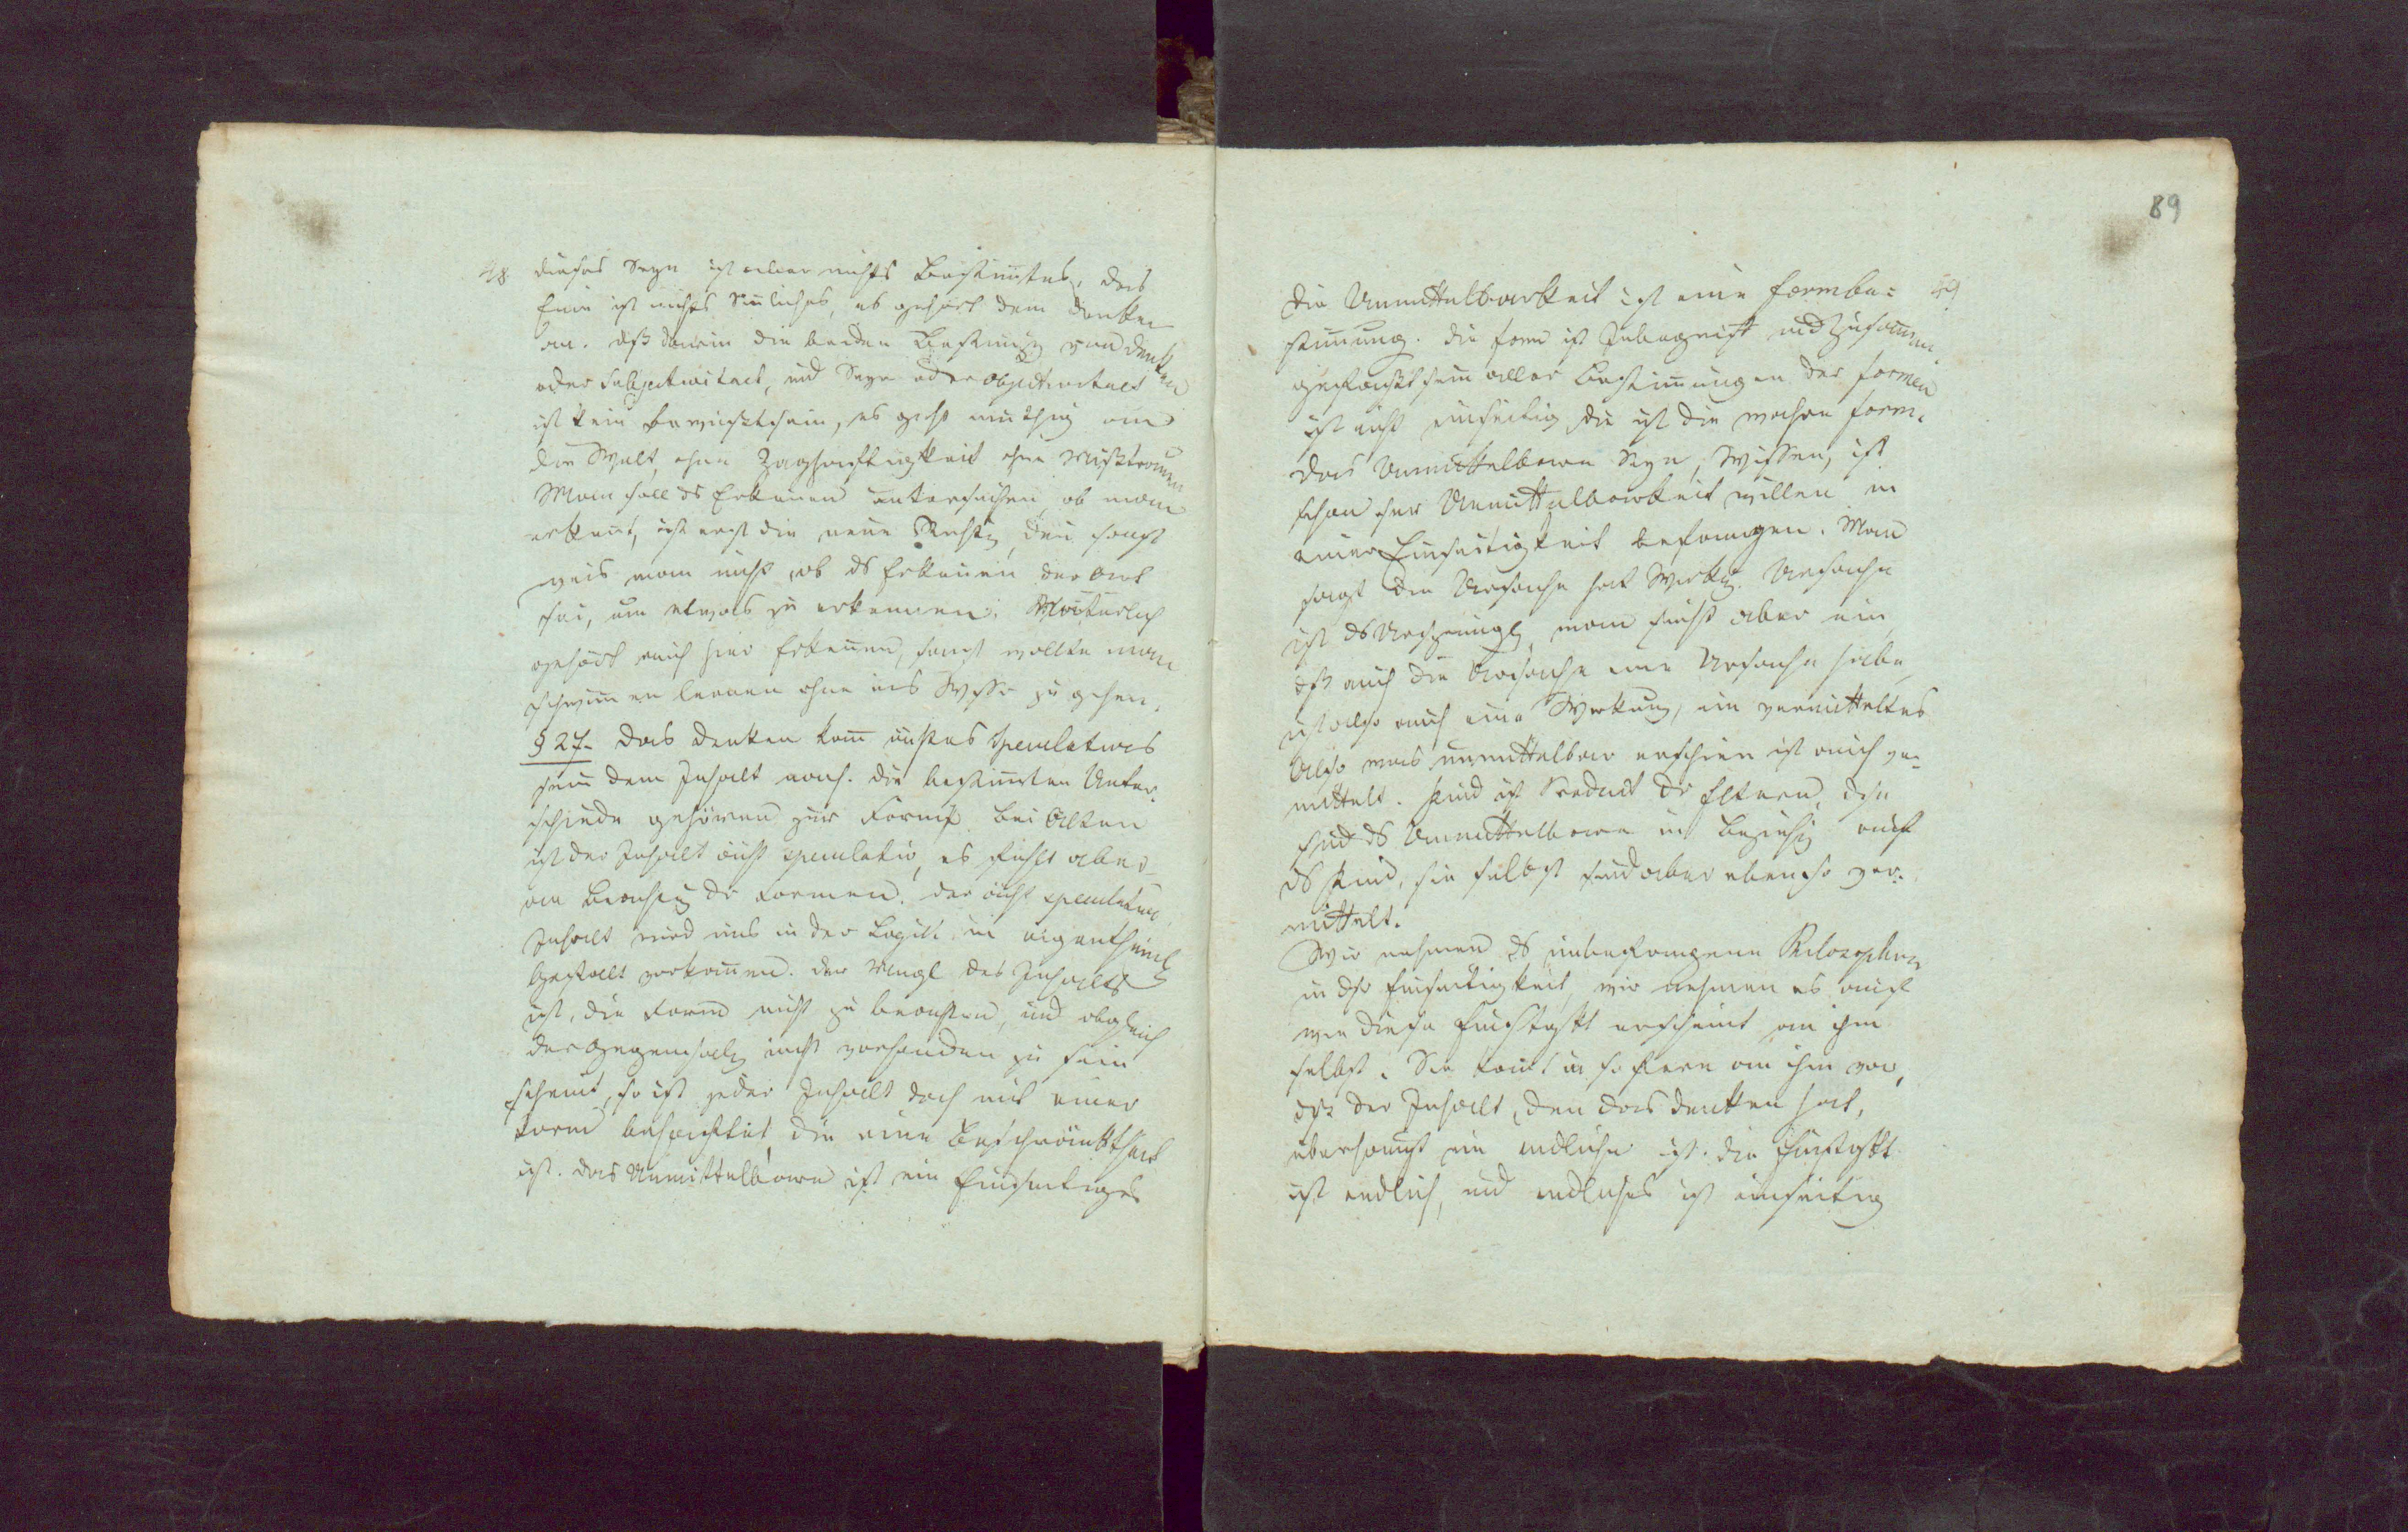 48 dieses Seyn ist aber nichts Bestimmtes, das
Eine ist nichts Sinliches, es gehört dem Denken
an. dß darin die beiden Bestimg von Denken
oder Subjectivitaet, und Seyn oder Objectivitaet
ist kein Bewußtsein, es geht muthig an
die Welt, ohne Zaghaftigkeit ohne Mißtrauen
Man soll ds Erkennen untersuchen, ob man
erkent, ist erst die neue Richtg, den sonst
weis man nicht, ob ds Erkennen der Art
sei, um etwas zu erkennen. Natürlich
gehört auch hier Erkennen, sonst wollte man
schwimmen lernen ohne ins Wasser zu gehen.
§ 27. Das Denken kann ächtes Speculatives
sein dem Inhalt nach. Die bestimmten Unter-
schiede gehören zur Form. Bei Alten
ist der Inhalt ächt speculativ, es fehlt aber
an Beachtg der Formen. Der ächt speculative
Inhalt wird uns in der Logik in eigenthüml
Gestalt vorkommen. Der Mangl des Inhalts
ist, die Form nicht zu beachten, und obgleich
der Gegensatz nicht vorhanden zu sein
scheint, so ist jeder Inhalt doch mit einer
Form behaftet, die eine Beschränktheit
ist. Das Unmittelbare ist ein Einseitiges
89
Die Unmittelbarkeit ist eine Formbe= 49
stimmung. Die Form ist Inbegriff und Zusammen
gefaßtsein aller Bestimmungen der Formen
ist nicht einseitig, die ist die wahre Form.
Das Unmittelbare Seyn, Wissen, ist
schon der Unmittelbarkeit willen in
einer Einseitigkeit befangen. Man
sagt die Ursache hat Wirkg. Ursache
ist ds Ursprüngl, man sieht aber ein
dß auch die Ursache eine Ursache habe
ist also auch eine Wirkung, ein vermitteltes
Also was unmittelbar erschien ist auch ver-
mittelt. Kind ist Product der Eltern, diese
sind ds Unmittelbare in Beziehg auf
ds Kind, sie selbst sind aber eben so ver-
mittelt.
Wir nehmen ds unbefangene Philosophiren
in der Einseitigkeit, wir nehmen es auch
wie diese Einstgkt erscheint an ihm
selbst. Sie komt in so fern an ihm vor,
dß der Inhalt, den das Denken hat,
überhaupt ein endlicher ist. Die Einstgkt
ist endlich, und endliches ist einseitig